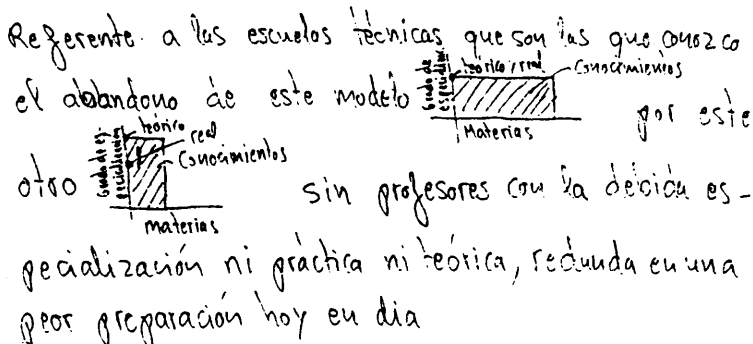 Referente a las escuelas técnicas que son las que conozco
el abandono de este modelo Grado de especialización teórico y real Conocimientos Materias por este
otro Grado de especialización teórico real Conocimientos Materias sin profesores con la debida es-
pecialización ni práctica ni teórica, redunda en una
peor preparación hoy en dia